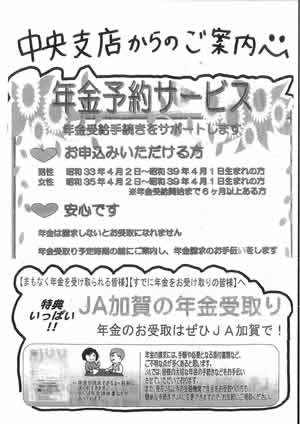 中央支店からのご案内
年金予約サービス
年金受給手続きをサポートします
お申込みいただける方
男性 昭和33年4月2日～昭和39年4月1日生まれの方
女性 昭和35年4月2日～昭和39年4月1日生まれの方
※年金受給開始まで6ヶ月以上ある方
安心です
年金は請求しないとお受取になれません
年金受取り予定時期の前にご案内し、年金請求のお手伝いをします
【まもなく年金を受け取られる皆様】【すでに年金をお受け取りの皆様】へ
特典
いっぱい!!
JA加賀の年金受取り
年金のお受取はぜひJA加賀で!
年金の請求には、手続や必要となる添付書類など、
ご不明な点が多くあると思います。